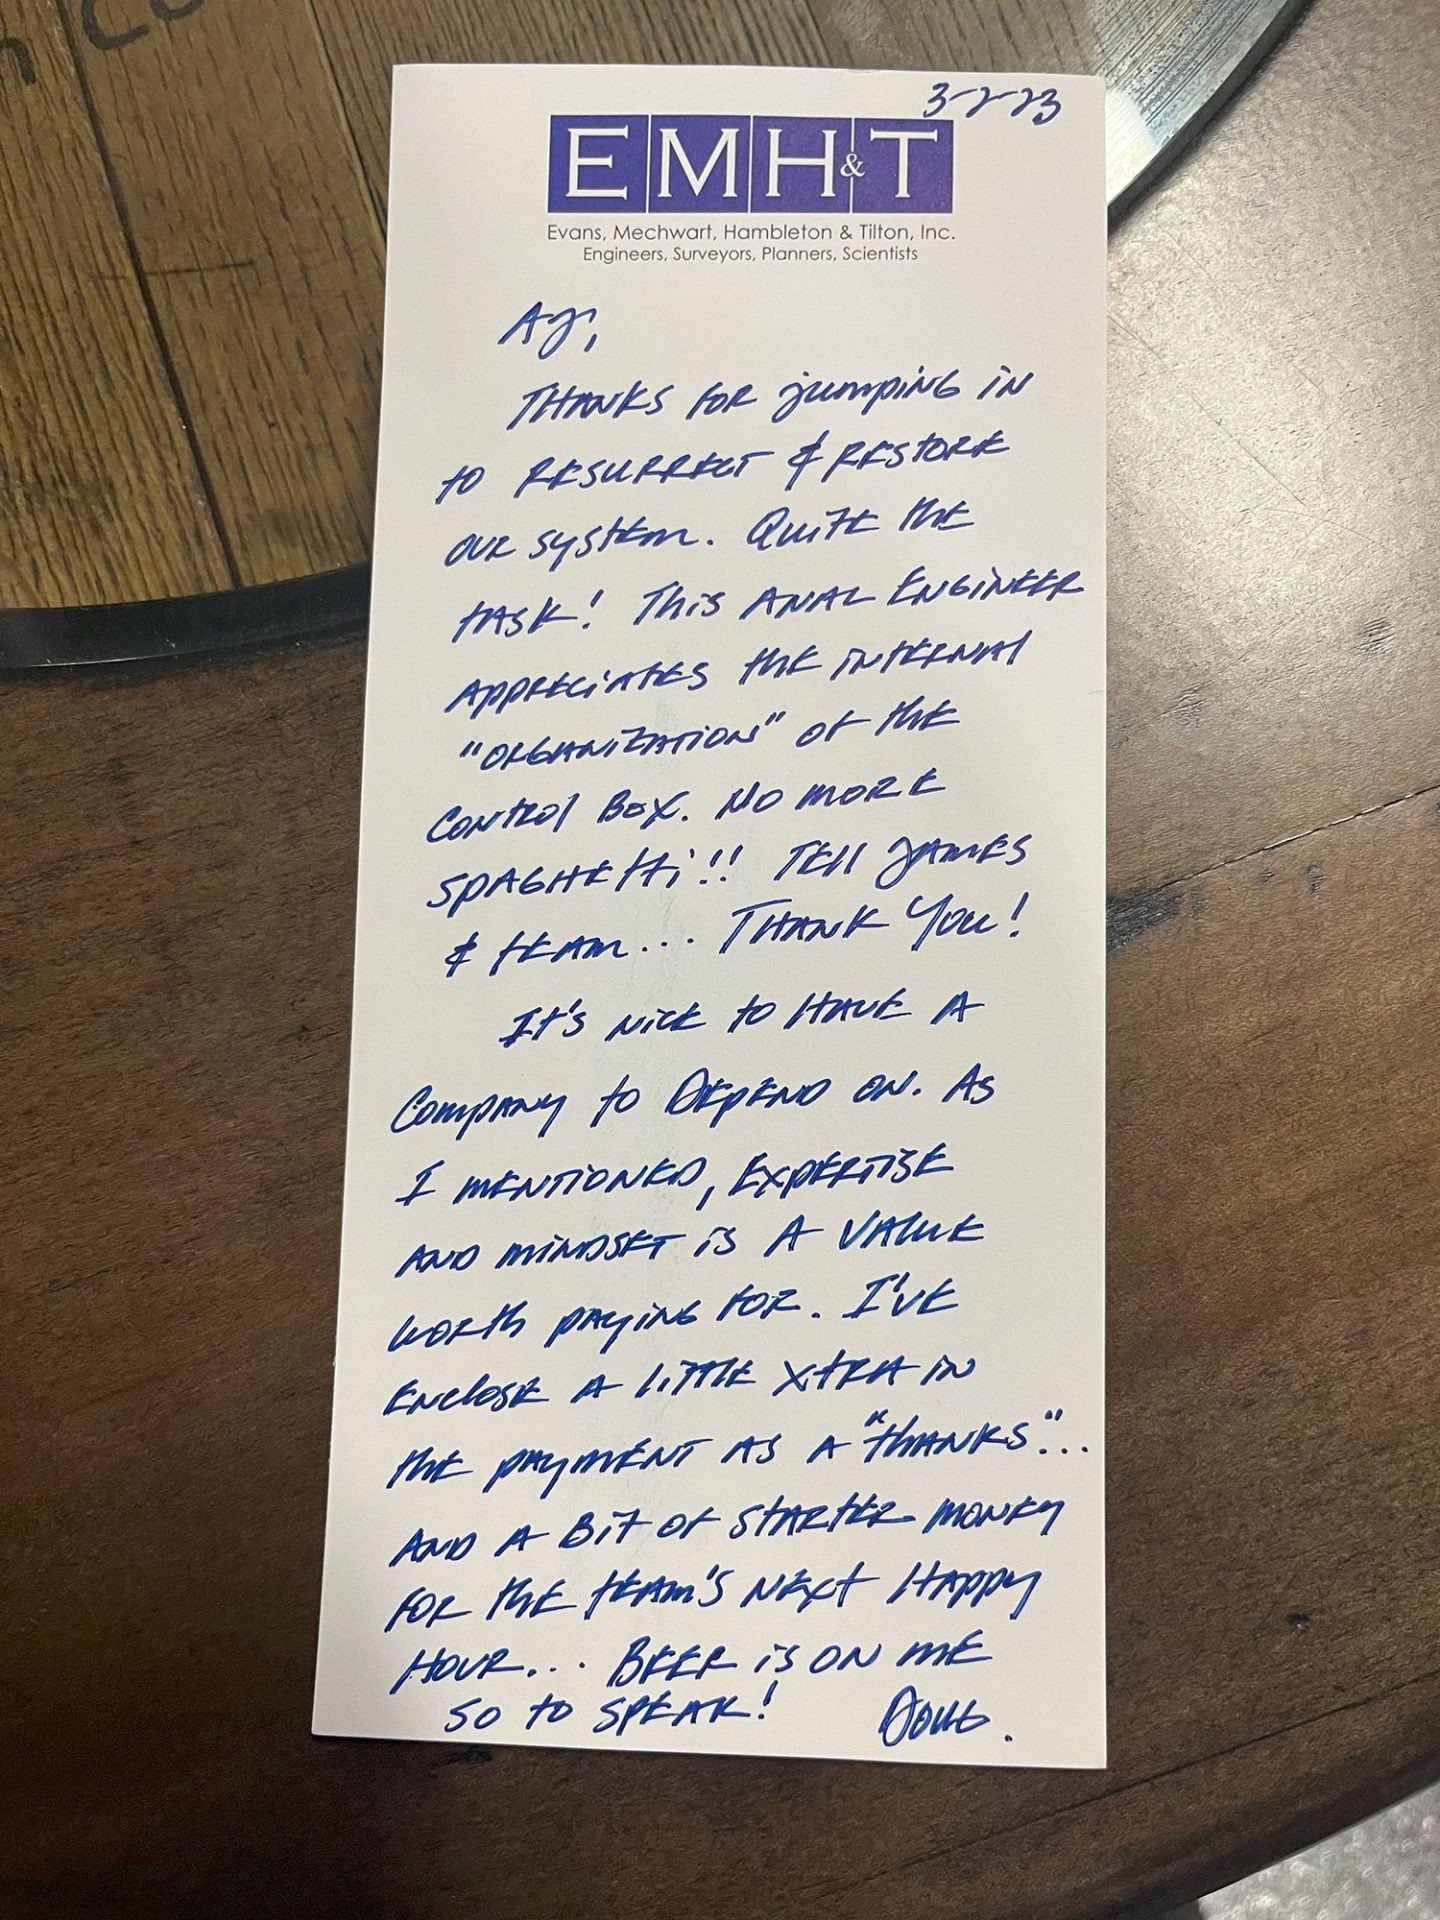 3-2-23
EMH&T
Evans, Mechwart, Hambleton & Tilton, Inc.
Engineers, Surveyors, Planners, Scientists
AJ,
THANKS FOR jumping IN
to RESURRECT & RESTORE
OUR SYSTEM. QUITE the
tASK! This ANAL ENGINEER
APPRECIATES the INTERNAL
"ORGANIZATION" OF the
CONTROL BOX. NO MORE
SPAGHETTI!! TELL JAMES
& tEAM... THANK YOU!
It's NICE to HAVE A
COMPANY to DEPEND ON. AS
I MENTIONED, EXPERTISE
AND MINDSET is A VALUE
WORTH PAYING FOR. I'VE
ENCLOSE A LITTLE XTRA IN
the PAYMENT AS A "THANKS"...
AND A BIT OF STARTER MONEY
FOR the tEAM'S NEXT HAPPY
HOUR... BEER is ON ME
SO TO SPEAK! DOUG.